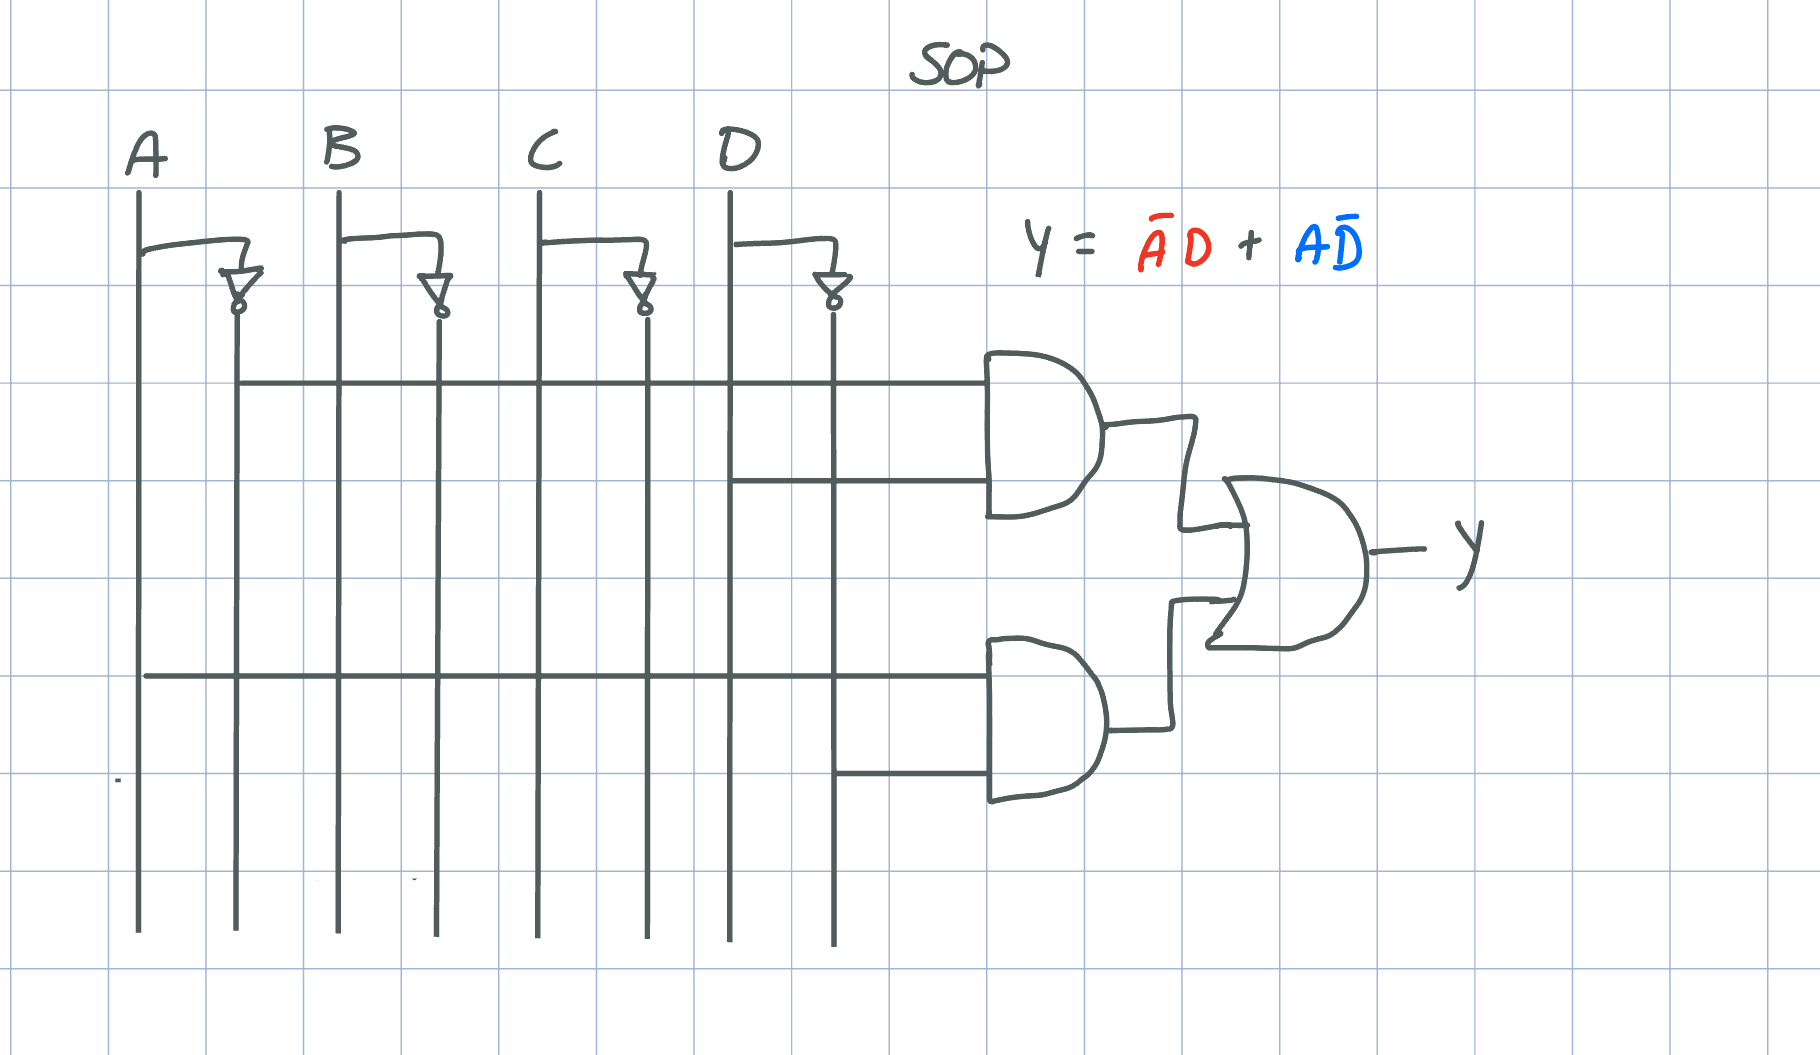 SOP
A B C D
Y = A̅D + AD̅
Y